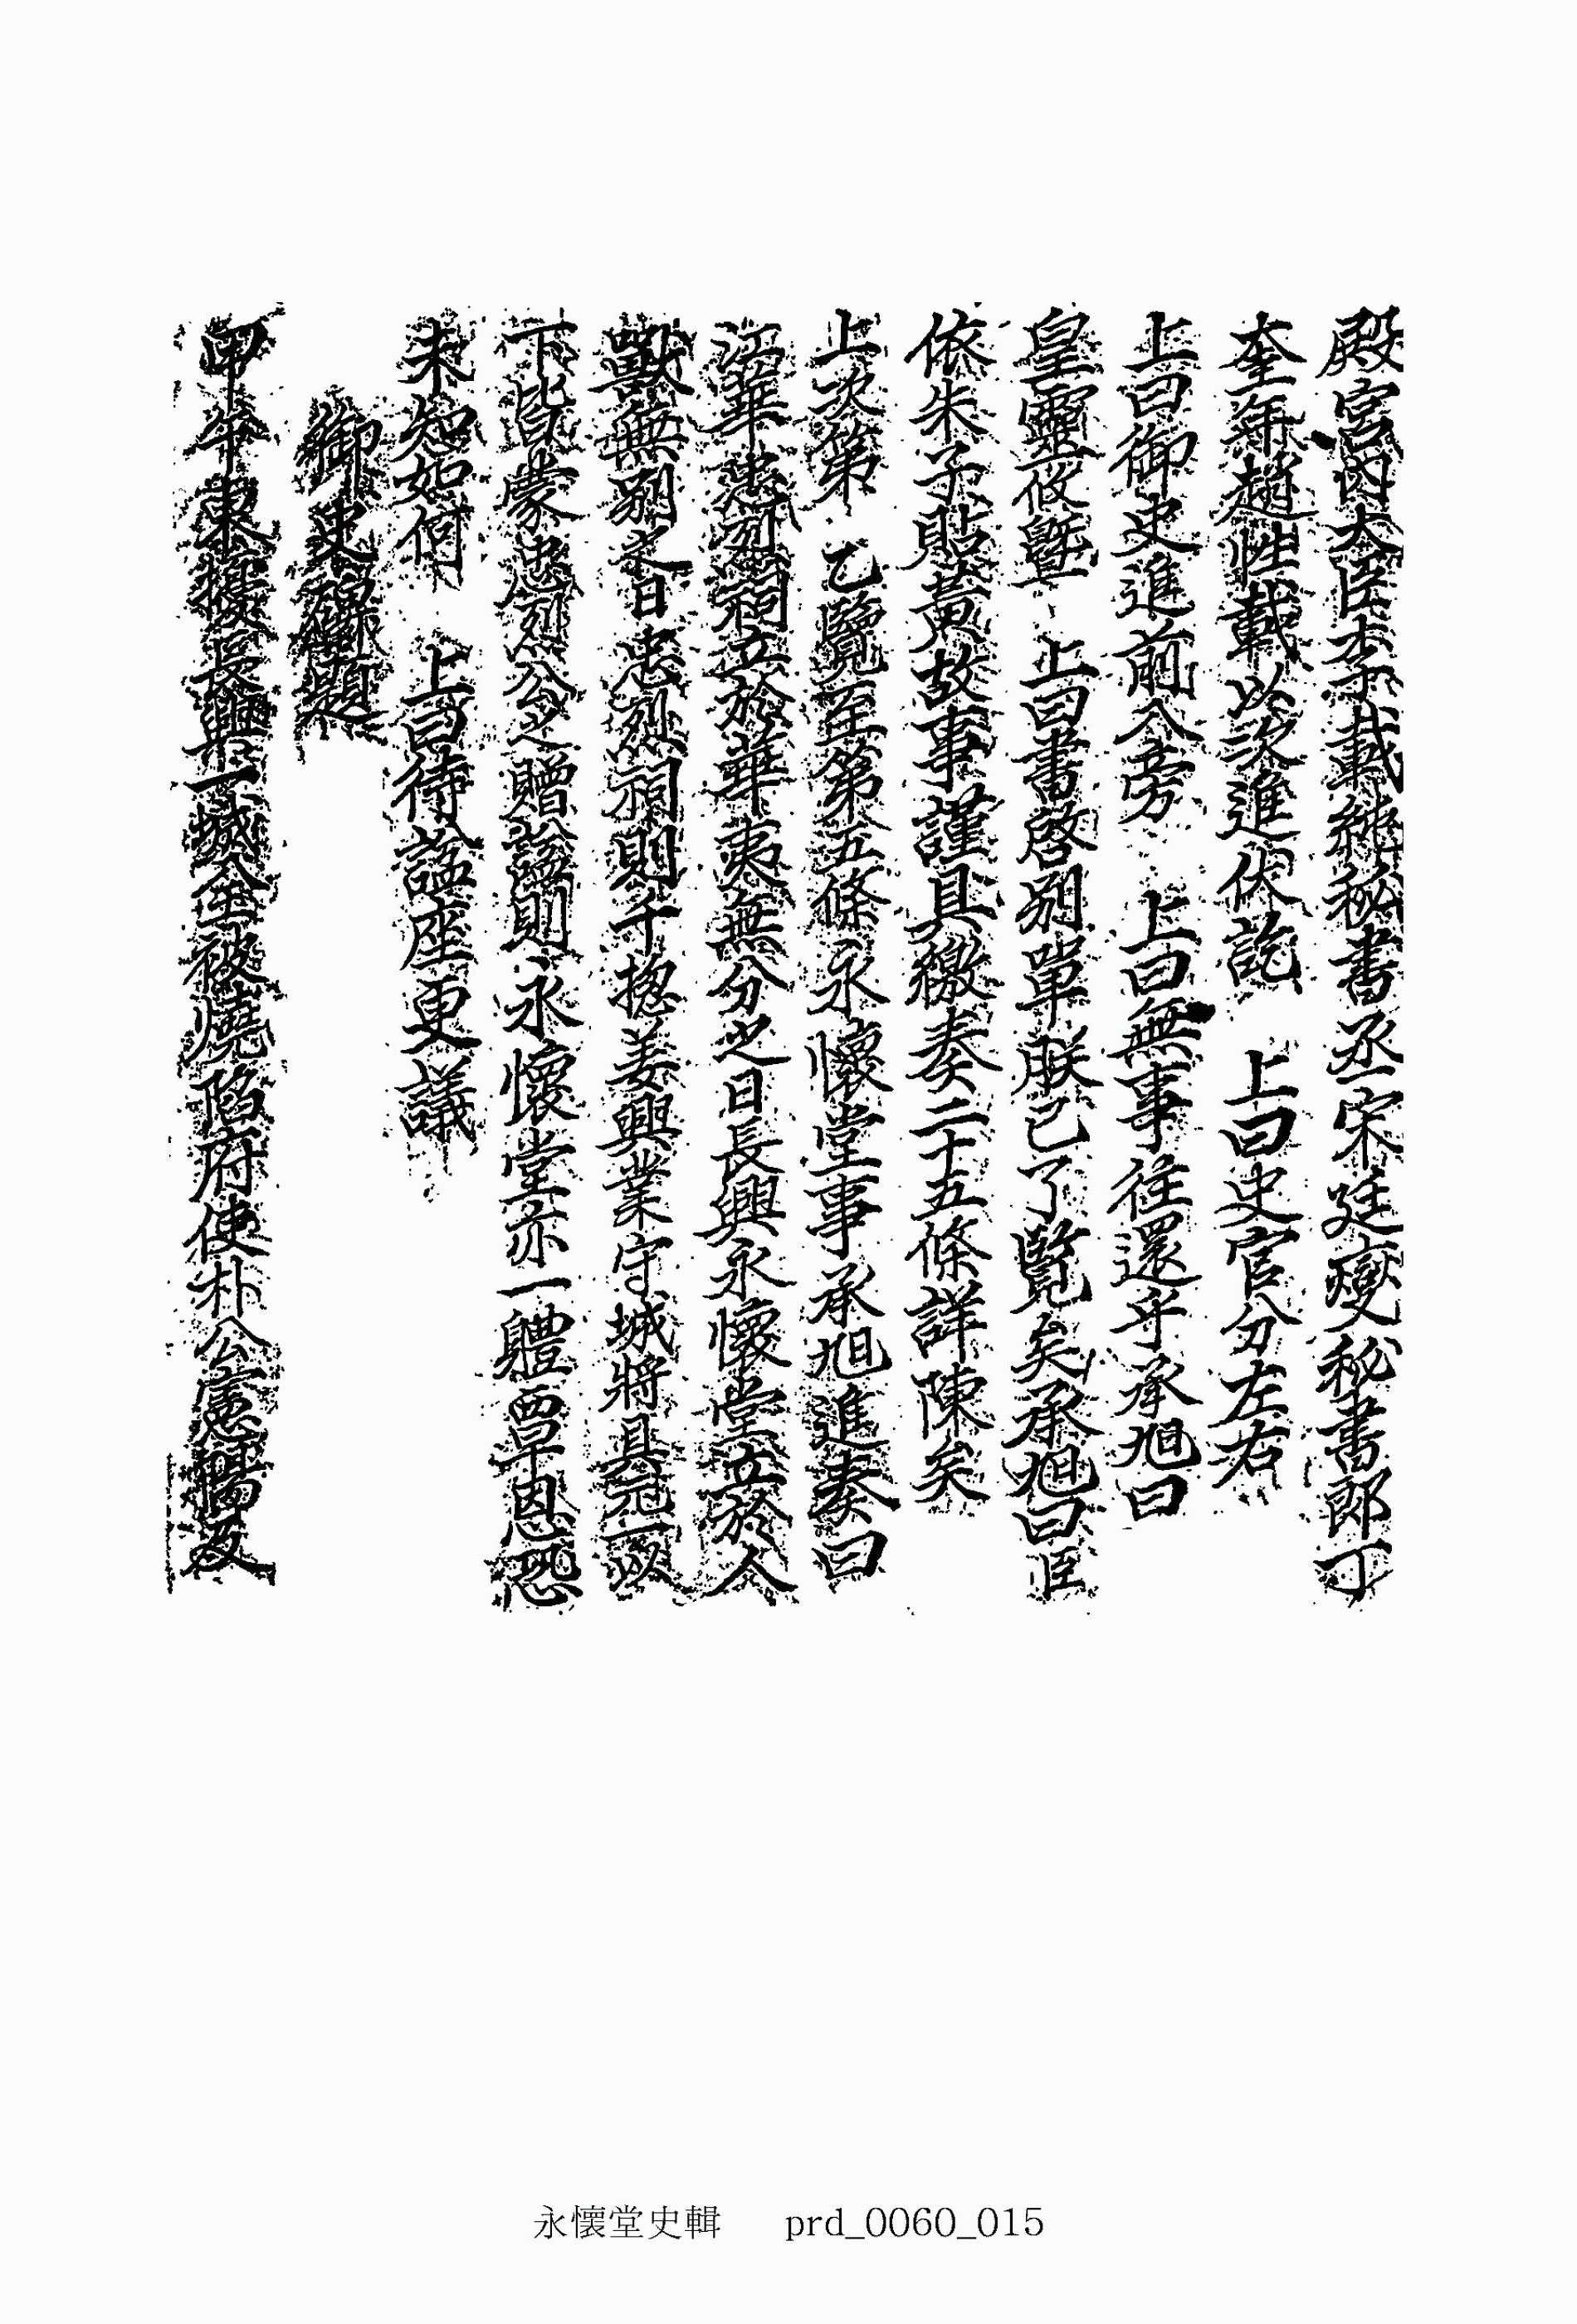 殿宮內大臣李載純秘書丞宋廷燮秘書郎丁
奎年趙性載以次進伏訖 上曰史官分左右
上曰御史進前入旁 上曰無事往還乎承旭曰
皇靈攸曁 上曰書啓別單朕已了覽矣承旭曰臣
依朱子貼黃故事謹具繳奏二十五條詳陳矣
上次第 乙覽至第五條永懷堂事承旭進奏曰
江華忠烈祠立於華夷無分之日長興永懷堂立於人
獸無別之日忠烈祠則千摠姜興業守城將具元一以
下皆蒙忠烈公之贈諡則永懷堂亦一體覃恩恐
未知如何 上曰待諡座更議
御史 題
甲午東擾長興一城全被燒陷府使朴公憲陽及
永懷堂史輯 prd_0060_015